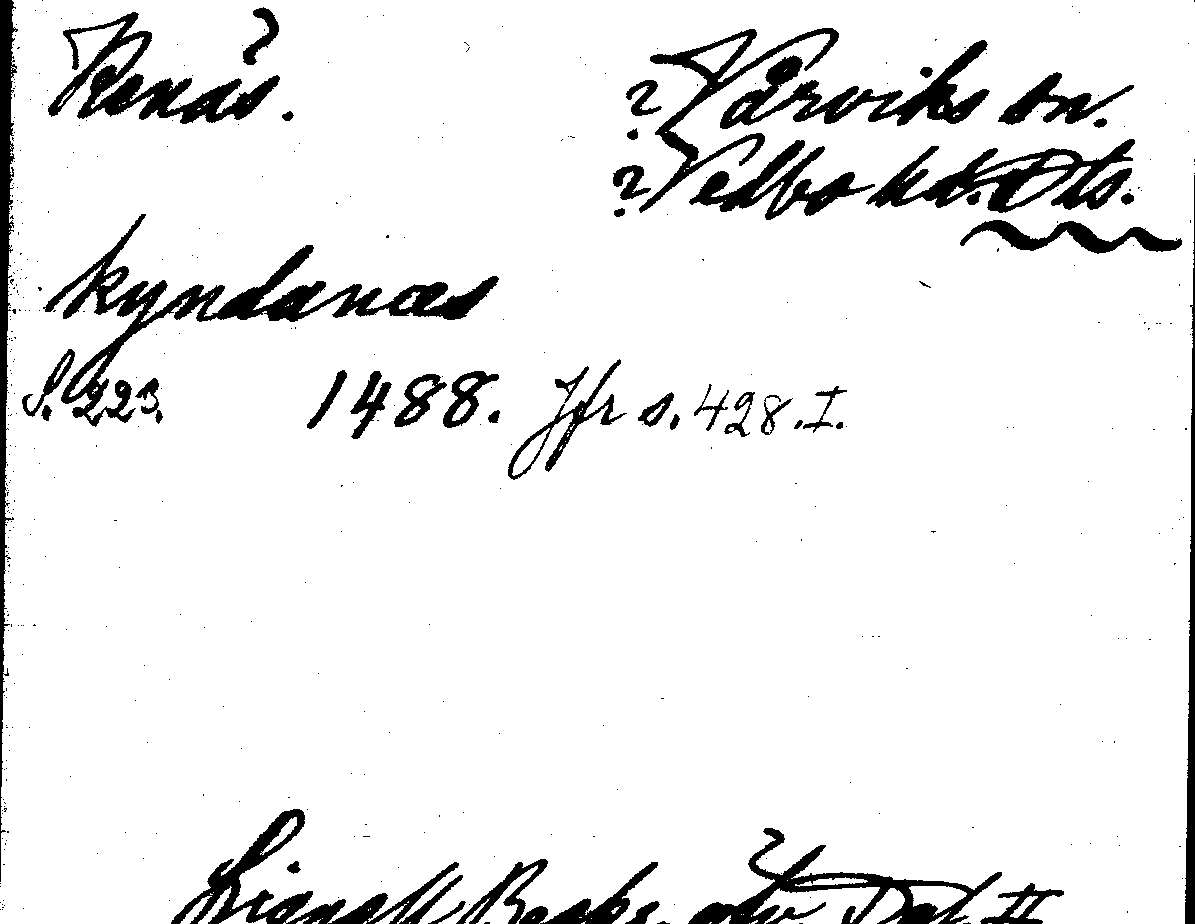 Renås.
? Vårviks sn.
? Vedbo hd. Dls.
kyndanæs
S. 223. 1488. Jfr s. 428. I.
Lignell Beskr. öfv. Dal II